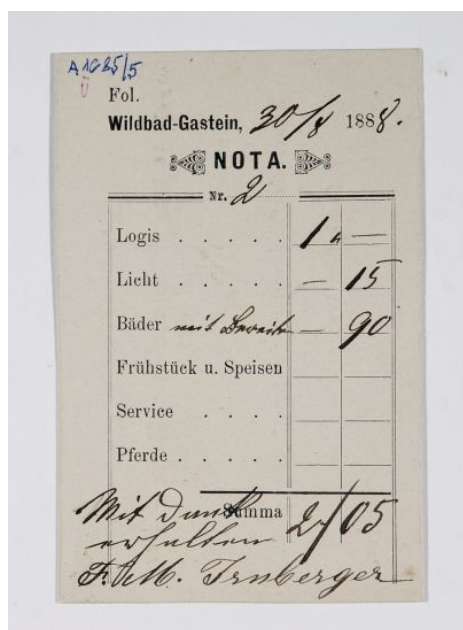 A 1685/5
Fol.
Wildbad-Gastein, 30/8 1888.
NOTA.
Nr. 2
Logis . . . . . 1 „ —
Licht . . . . . — 15
Bäder mit Bereiten — 90
Frühstück u. Speisen
Service . . . .
Pferde . . . . .
Summa 2/05
Mit Dank
erhalten
F. M. Irnberger